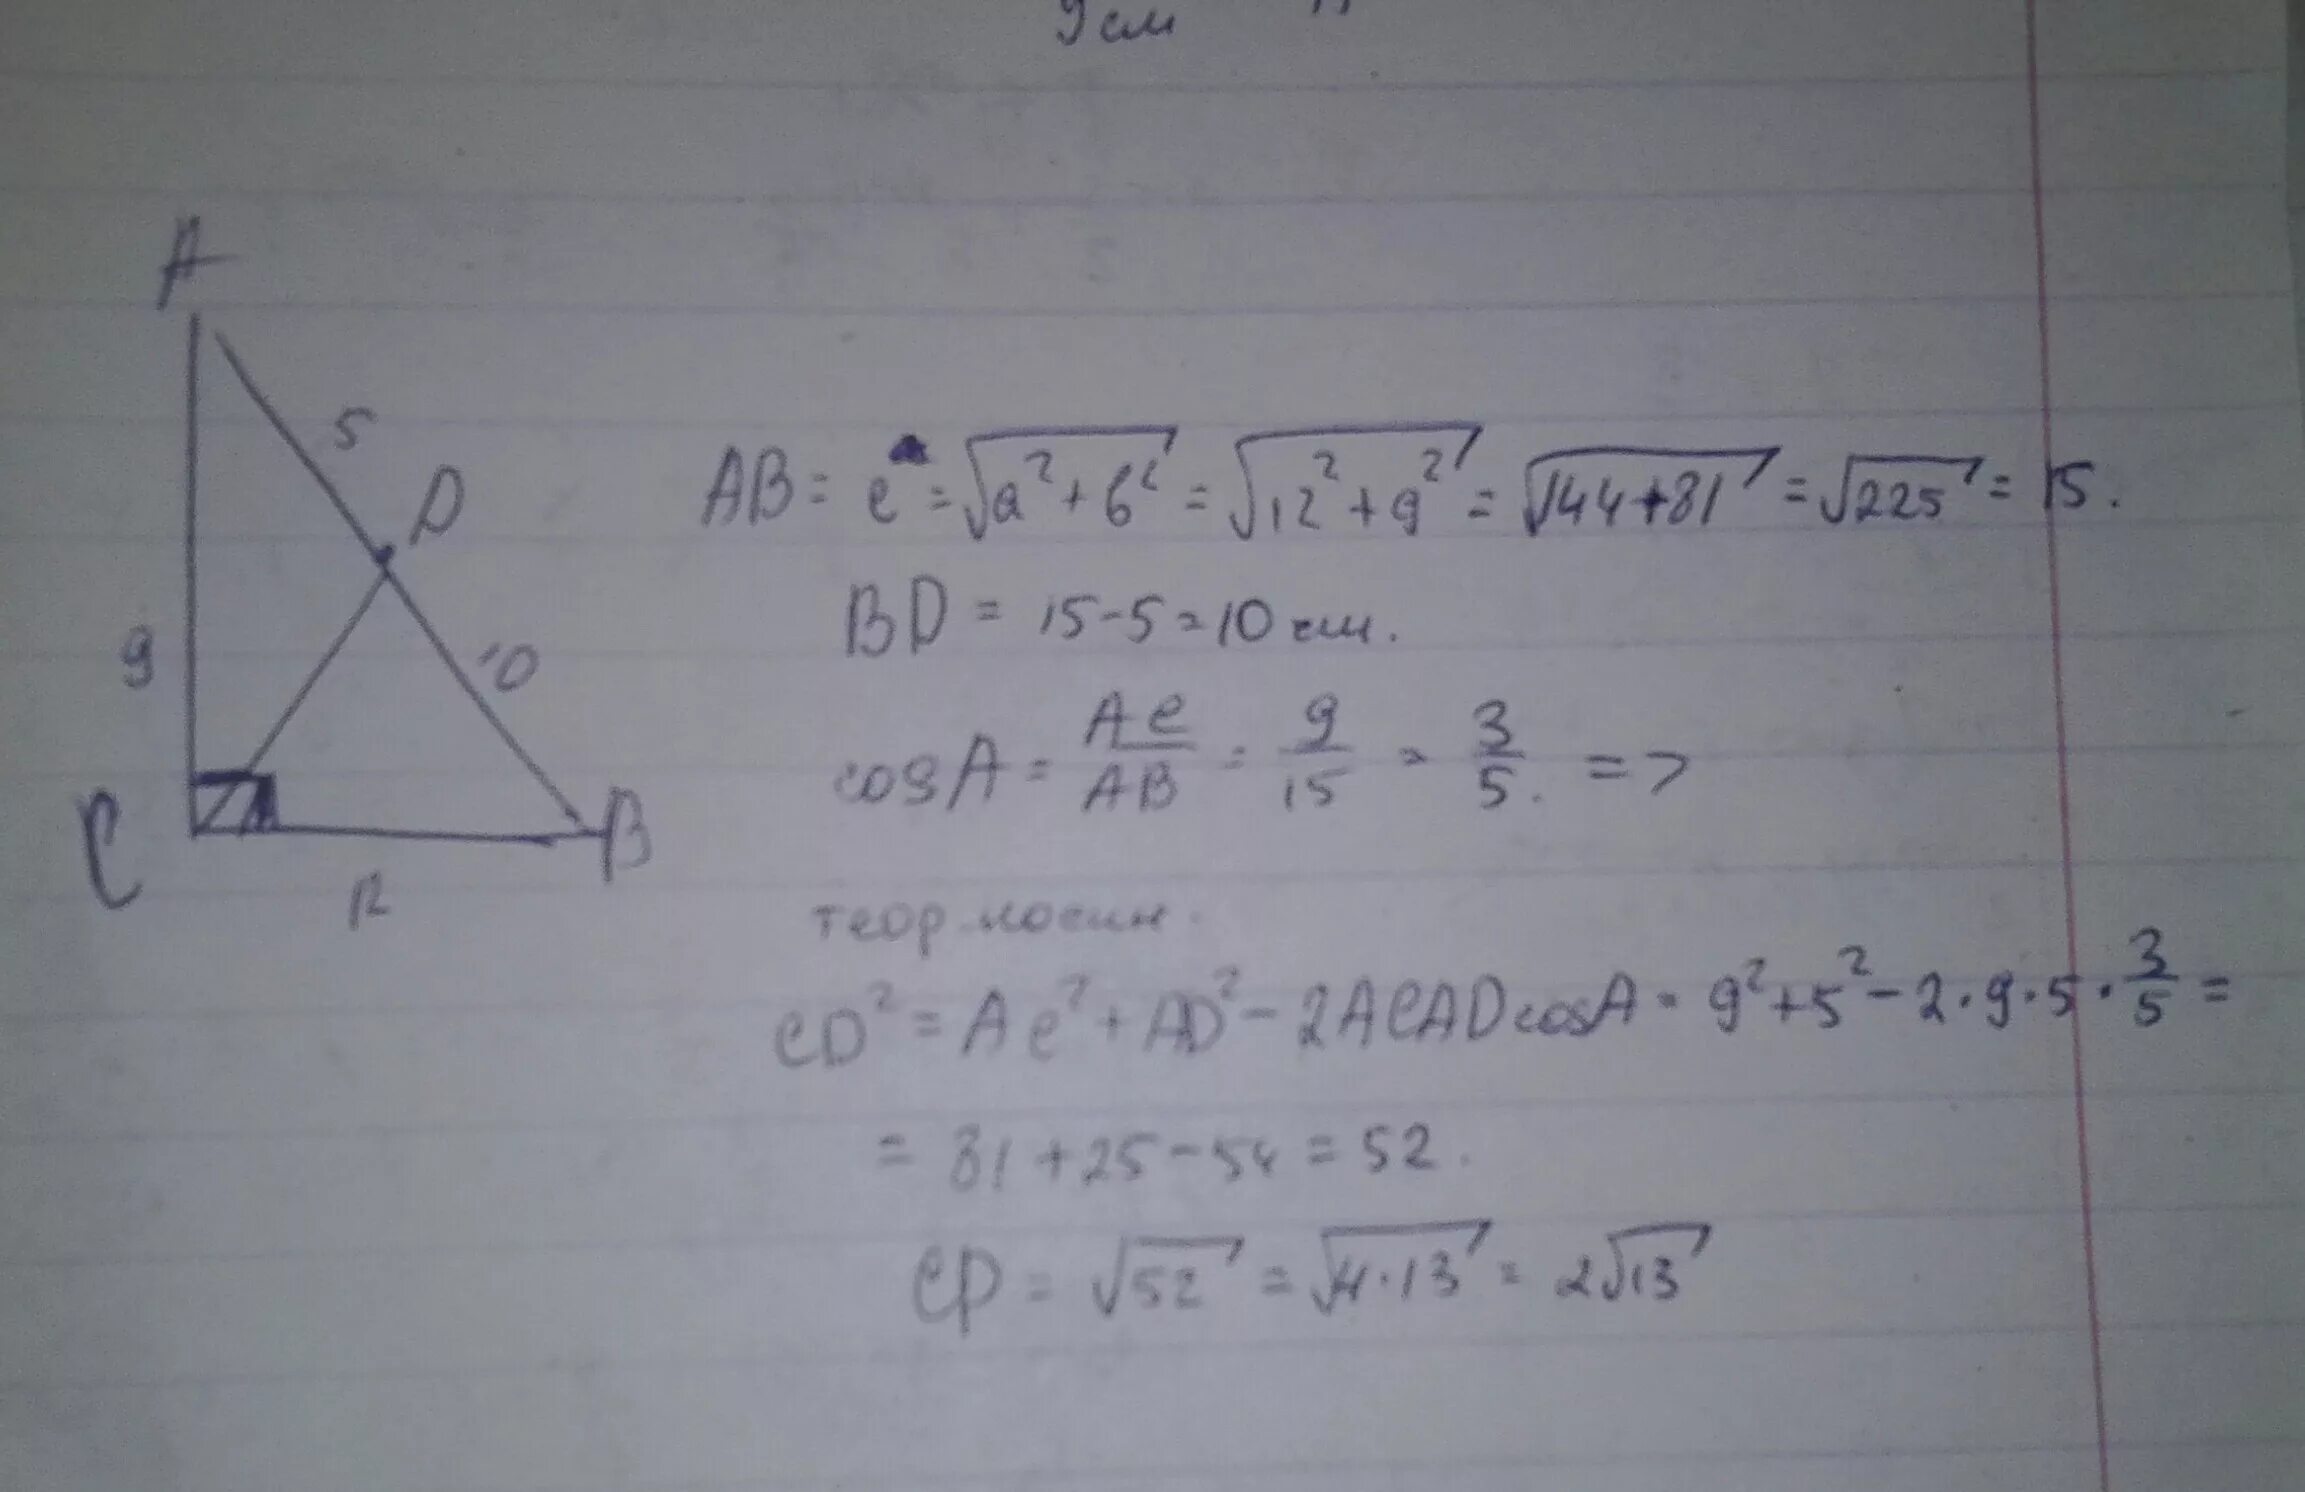 9 см
A
5
D
9
10
C
B
12
AB = c = √a² + b² = √12² + 9² = √144+81 = √225 = 15.
BD = 15-5=10 см.
cos A = AC/AB = 9/15 = 3/5. =>
теор косин.
CD² = AC² + AD² - 2ACAD cosA = 9²+5²-2·9·5·3/5 =
= 81+25-54 = 52.
CD = √52 = √4·13 = 2√13